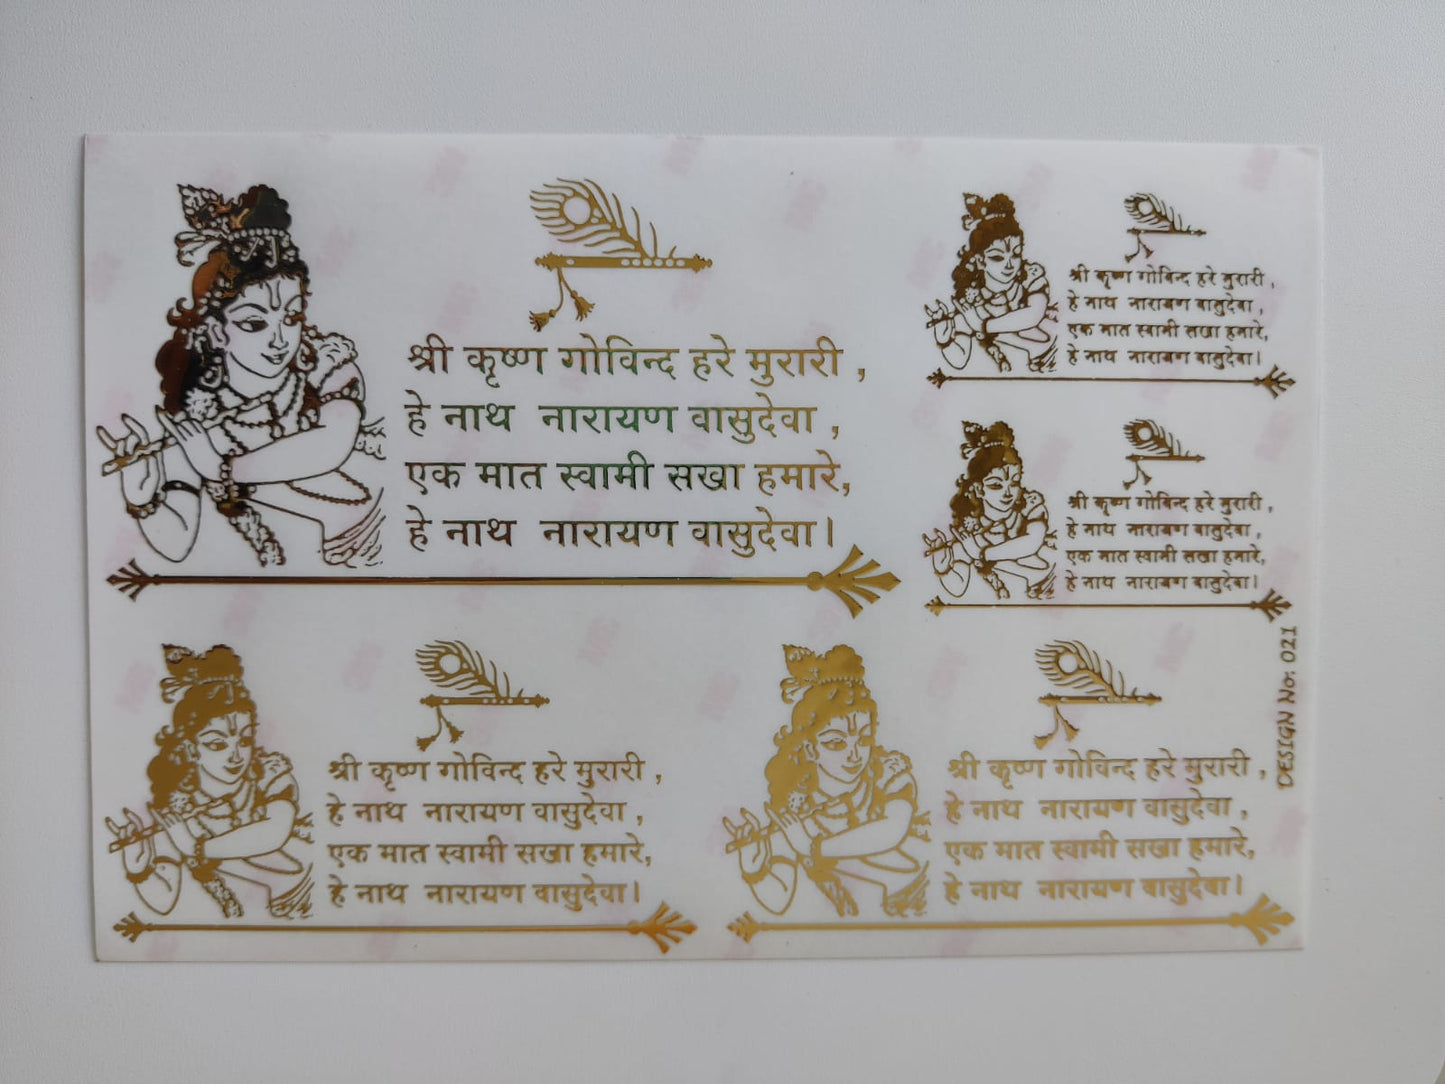 श्री कृष्ण गोविन्द हरे मुरारी ,
हे नाथ नारायण वासुदेवा ,
एक मात स्वामी सखा हमारे,
हे नाथ नारायण वासुदेवा।
श्री कृष्ण गोविन्द हरे मुरारी ,
हे नाथ नारायण वासुदेवा ,
एक मात स्वामी सखा हमारे,
हे नाथ नारायण वासुदेवा।
श्री कृष्ण गोविन्द हरे मुरारी ,
हे नाथ नारायण वासुदेवा ,
एक मात स्वामी सखा हमारे,
हे नाथ नारायण वासुदेवा।
श्री कृष्ण गोविन्द हरे मुरारी ,
हे नाथ नारायण वासुदेवा ,
एक मात स्वामी सखा हमारे,
हे नाथ नारायण वासुदेवा।
श्री कृष्ण गोविन्द हरे मुरारी ,
हे नाथ नारायण वासुदेवा ,
एक मात स्वामी सखा हमारे,
हे नाथ नारायण वासुदेवा।
DESIGN No: 021